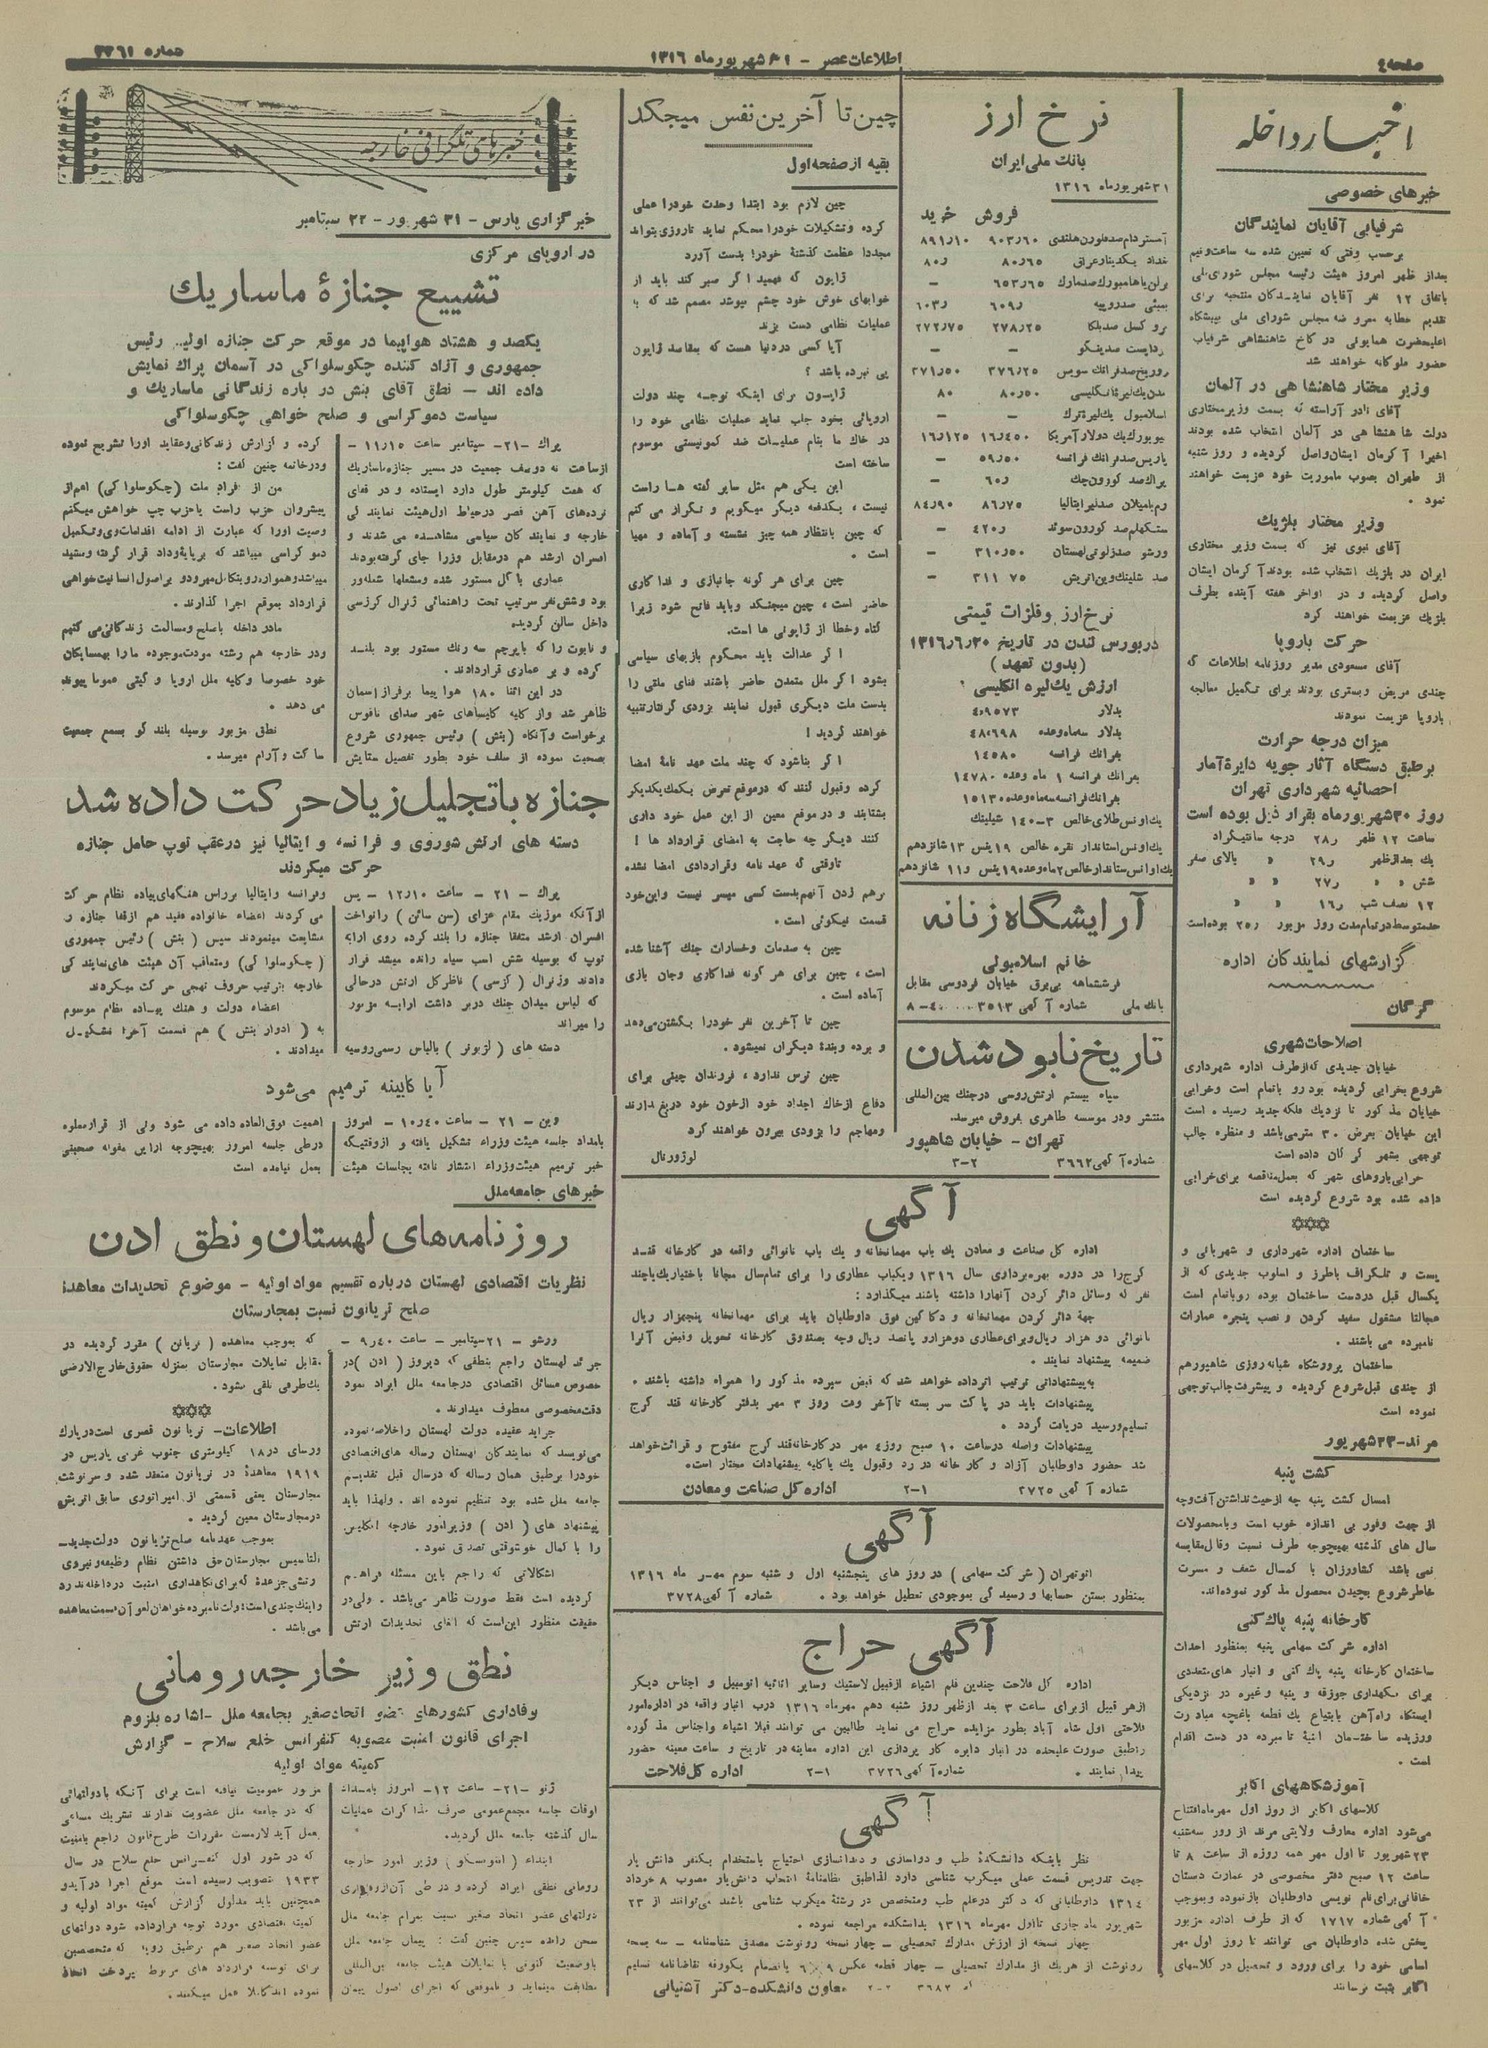 صفحه٤
اطلاعات عصر - ٣١ شهریور ماه ١٣١٦
شماره ٣٣٦١
اخبار داخله
خبرهای خصوصی
شرفیابی آقایان نمایندگان
برحسب وقتی که تعیین شده سه ساعت و نیم
بعداز ظهر امروز هیئت رئیسه مجلس شورای ملی
باتفاق ١٢ نفر آقایان نمایندگان منتخبه برای
تقدیم خطابه معروضه مجلس شورای ملی به پیشگاه
اعلیحضرت همایونی در کاخ شاهنشاهی شرفیاب
حضور ملوکانه خواهند شد
وزیر مختار شاهنشاهی در آلمان
آقای نادر آراسته که بسمت وزیر مختاری
دولت شاهنشاهی در آلمان انتخاب شده بودند
اخیرا آگرمان ایشان واصل گردیده و روز شنبه
از طهران بصوب ماموریت خود عزیمت خواهند
نمود .
وزیر مختار بلژیك
آقای نبوی نیز که بسمت وزیر مختاری
ایران در بلژیك انتخاب شده بودند آگرمان ایشان
واصل گردیده و در اواخر هفته آینده بطرف
بلژیك عزیمت خواهند کرد
حرکت باروپا
آقای مسعودی مدیر روزنامه اطلاعات که
چندی مریض و بستری بودند برای تکمیل معالجه
باروپا عزیمت نمودند
میزان درجه حرارت
برطبق دستگاه آثار جویه دایرة آمار
احصائیه شهرداری تهران
روز ٣٠ شهریورماه بقرار ذیل بوده است
ساعت ١٢ ظهر ٢٨ر درجه سانتیگراد
یك بعدازظهر ٢٩ر « بالای صفر
شش « « ٢٧ر « «
١٢ نصف شب ١٦ر « «
حدمتوسط درتمام مدت روز مزبور ٢٥ر بوده است
گزارشهای نمایندگان اداره
گرگان
اصلاحات شهری
خیابان جدیدی که ازطرف اداره شهرداری
شروع بخرابی گردیده بود رو باتمام است وخرابی
خیابان مذکور تا نزدیك فلکه جدید رسیده است
این خیابان بعرض ٣٠ متر می باشد و منظره جالب
توجهی بشهر گرگان داده است
خرابی باروهای شهر که بعمل مناقصه برای خرابی
داده شده بود شروع گردیده است
ساختمان اداره شهرداری و شهربانی و
پست و تلگراف باطرز و اسلوب جدیدی که از
یکسال قبل دردست ساختمان بوده رو باتمام است
عجالتا مشغول سفید کردن و نصب پنجره عمارات
نامبرده می باشند .
ساختمان پرورشگاه شبانه روزی شاهپور هم
از چندی قبل شروع گردیده و پیشرفت جالب توجهی
نموده است
مرند-٢٣ شهریور
کشت پنبه
امسال کشت پنبه چه از حیث نداشتن آفت و چه
از جهت وفور بی اندازه خوب است و با محصولات
سال های گذشته بهیچوجه طرف نسبت وقابل مقایسه
نمی باشد کشاورزان با کمال شعف و مسرت
خاطر شروع بچیدن محصول مذکور نموده اند.
کارخانه پنبه پاك کنی
اداره شرکت سهامی پنبه بمنظور احداث
ساختمان کارخانه پنبه پاك کنی و انبار های متعددی
برای نگهداری جوزقه و پنبه و غیره در نزدیکی
ایستگاه راه آهن بابتیاع یك قطعه باغچه مبادرت
ورزیده ساختمان ابنیة نامبرده در دست اقدام
است .
آموزشگاههای اکابر
کلاسهای اکابر از روز اول مهرماه افتتاح
میشود اداره معارف ولایتی مرند از روز سه شنبه
٢٣ شهریور تا اول مهر همه روزه از ساعت ٨ تا
ساعت ١٢ صبح دفتر مخصوصی در عمارت دبستان
خاقانی برای نام نویسی داوطلبان باز نموده و بموجب
آگهی شماره ١٧١٧ که از طرف اداره مزبور
پخش شده داوطلبان می توانند تا روز اول مهر
اسامی خود را برای ورود و تحصیل در کلاسهای
اکابر ثبت برسانند
نرخ ارز
بانك ملی ایران
٣١ شهریور ماه ١٣١٦
فروش خرید
آمستردام صد فلورن هلندی ٩٠٣ر٦٠ ٨٩١ر١٠
بغداد یکدینار عراقی ٨٠ر٦٥ ٨٠ر
برلن یا هامبورگ صد مارك ٦٥٣ر٦٥ -
بمبئی صد روپیه ٦٠٩ر ٦٠٣ر
بروکسل صد بلگا ٢٧٨ر٢٥ ٢٧٢ر٧٥
بوداپست صد پنگو - -
زوریخ صد فرانك سویس ٣٧٦ر٢٥ ٣٧١ر٥٠
لندن یك لیرة انگلیسی ٨٠ر٥٠ ٨٠
اسلامبول یك لیرة ترك - -
نیویورك یك دولار آمریکا ١٦ر٤٥٠ ١٦ر١٢٥
پاریس صد فرانك فرانسه ٥٩ر٥٠ -
پراك صد کورون چك ٦٠ر -
رم یا میلان صد لیر ایتالیا ٨٦ر٧٥ ٨٤ر٩٠
ستکهلم صد کورون سوئد ٤٢٠ر -
ورشو صد زلوتی لهستان ٣١٠ر٥٠ -
صد شلینك وین اتریش ٣١١ ٧٥ -
نرخ ارز وفلزات قیمتی
دربورس لندن در تاریخ ١٣١٦ر٦ر٣٠
(بدون تعهد )
ارزش یك لیره انگلیسی :
بدلار ٤ر٩٥٧٣
بدلار سه ماه وعده ٤٨،٦٩٨
بفرانك فرانسه ١٤٥٨٠
بفرانك فرانسه ١ ماه وعده ١٤٧٨٠
بفرانك فرانسه سه ماه وعده ١٥١٣٠
یك اونس طلای خالص ٣-١٤٠ شیلینك
یك اونس استاندار نقره خالص ١٩ پنس ١٣ شانزدهم
یك اونس ستاندار خالص ٢ ماه وعده ١٩ پنس و ١١ شانزدهم
آرایشگاه زنانه
خانم اسلامبولی
فرشتمانه بی برق خیابان فردوسی مقابل
بانك ملی شماره آگهی ٣٥١٣ ٤٠-٨
تاریخ نابود شدن
سپاه بیستم ارتش روسی درجنك بین المللی
منتشر ودر موسسه طاهری بفروش میرسد.
تهران - خیابان شاهپور
شماره آگهی ٣٦٦٢ ٢-٣
چین تا آخرین نفس میجنگد
بقیه از صفحه اول
چین لازم بود ابتدا وحدت خودرا عملی
کرده وتشکیلات خودرا محکم نماید تاروزی بتواند
مجددا عظمت گذشتة خودرا بدست آورد
ژاپون که فهمید اگر صبر کند باید از
خوابهای خوش خود چشم بپوشد مصمم شد که به
عملیات نظامی دست بزند
آیا کسی در دنیا هست که بمقاصد ژاپون
پی نبرده باشد ؟
ژاپون برای اینکه توجه چند دولت
اروپائی بخود جلب نماید عملیات نظامی خود را
در خاك ما بنام عملیات ضد کمونیستی موسوم
ساخته است
این یکی هم مثل سایر گفته ها راست
نیست ، یکدفعه دیگر میگویم و تکرار می کنم
که چین بانتظار همه چیز نشسته و آماده و مهیا
است .
چین برای هر گونه جانبازی و فداکاری
حاضر است ، چین میجنگد وباید فاتح شود زیرا
گناه وخطا از ژاپونی ها است.
اگر عدالت باید محکوم بازیهای سیاسی
بشود اگر ملل متمدن حاضر باشند فنای ملتی را
بدست ملت دیگری قبول نمایند بزودی گرفتار تنبیه
خواهند گردید !
اگر بناشود که چند ملت عهد نامة امضا
کرده وقبول کنند که درموقع تعرض بکمك یکدیگر
بشتابند و در موقع معین از این عمل خود داری
کنند دیگر چه حاجت به امضای قرارداد ها !
تاوقتی که عهد نامه وقراردادی امضا نشده
برهم زدن آنهم بدست کسی میسر نیست و این خود
قسمت نیکوئی است .
چین به صدمات وخسارات جنك آشنا شده
است ، چین برای هر گونه فداکاری وجان بازی
آماده است .
چین تا آخرین نفر خودرا بکشتن می دهد
و برده وبندة دیگران نمیشود.
چین ترس ندارد، فرزندان چینی برای
دفاع ازخاك اجداد خود ازخون خود دریغ ندارند
ومهاجم را بزودی بیرون خواهند کرد
لوژورنال
آگهی
اداره کل صناعت و معادن یك باب مهمانخانه و یك باب نانوائی واقعه در کارخانه قند
کرج را در دوره بهره برداری سال ١٣١٦ ویکباب عطاری را برای تمام سال مجانا باختیار یك یا چند
نفر که وسائل دائر کردن آنهارا داشته باشند میگذارد :
جهة دائر کردن مهمانخانه و دکاکین فوق داوطلبان باید برای مهمانخانه پنجهزار ریال
نانوائی دو هزار ریال وبرای عطاری دوهزار و پانصد ریال وجه بصندوق کارخانه تحویل وقبض آنرا
ضمیمه پیشنهاد نمایند .
به پیشنهاداتی ترتیب اثر داده خواهد شد که قبض سپرده مذکور را همراه داشته باشند .
پیشنهادات باید در پاکت سر بسته تا آخر وقت روز ٣ مهر بدفتر کارخانه قند کرج
تسلیم ورسید دریافت گردد .
پیشنهادات واصله درساعت ١٠ صبح روز ٤ مهر درکارخانه قند کرج مفتوح و قرائت خواهد
شد حضور داوطلبان آزاد و کارخانه در رد وقبول یك یا کلیه پیشنهادات مختار است.
شماره آگهی ٣٧٢٥ ١-٢ اداره کل صناعت و معادن
آگهی
اتوتهران ( شرکت سهامی ) در روز های پنجشنبه اول و شنبه سوم مهر ماه ١٣١٦
بمنظور بستن حسابها و رسیدگی بموجودی تعطیل خواهد بود . شماره آگهی ٣٧٢٨
آگهی حراج
اداره کل فلاحت چندین قلم اشیاء از قبیل لاستیك وسایر اثاثیه اتومبیل و اجناس دیگر
از هر قبیل از برای ساعت ٣ بعد از ظهر روز شنبه دهم مهرماه ١٣١٦ درب انبار واقعه در اداره امور
فلاحتی اول شاه آباد بطور مزایده حراج می نماید طالبین می توانند قبلا اشیاء واجناس مذکوره
راطبق صورت علیحده در انبار دایره کار پردازی این اداره معاینه در تاریخ و ساعت معینه حضور
پیدا نمایند . شماره آگهی ٣٧٢٦ ١-٢ اداره کل فلاحت
آگهی
نظر باینکه دانشکدة طب و دواسازی و دندانسازی احتیاج باستخدام یکنفر دانش یار
جهت تدریس قسمت عملی میکرب شناسی دارد لذا طبق نظامنامة انتخاب دانش یار مصوب ٨ خرداد
١٣١٤ داوطلبانی که دکتر درعلم طب ومتخصص در رشتة میکرب شناسی باشند می توانند از ٢٣
شهریور ماه جاری تا اول مهرماه ١٣١٦ بدانشکده مراجعه نموده .
چهار نسخه از ارزش مدارك تحصیلی - چهار نسخه رونوشت مصدق شناسنامه - سه نسخه
رونوشت از هریك از مدارك تحصیلی - چهار قطعه عکس ٩×٦ بانضمام یکورقه تقاضانامه تسلیم
٣٦٨٢ ٢-٢ معاون دانشکده-دکتر آشتیانی
خبرهای تلگرافی خارجه
خبرگزاری پارس - ٣١ شهریور - ٢٢ سپتامبر
در اروپای مرکزی
تشییع جنازة ماساریك
یکصد و هشتاد هواپیما در موقع حرکت جنازه اولین رئیس
جمهوری و آزاد کننده چکوسلواکی در آسمان پراك نمایش
داده اند - نطق آقای بنش در باره زندگانی ماساریك و
سیاست دموکراسی و صلح خواهی چکوسلواکی
پراك -٢١- سپتامبر ساعت ١١ر١٥ -
ازساعت نه ونیم جمعیت در مسیر جنازه ماساریك
که هفت کیلومتر طول دارد ایستاده و در قفای
نرده های آهن قصر درحیاط اول هیئت نمایندگی
خارجه و نمایندگان سیاسی مشاهده می شدند و
افسران ارشد هم درمقابل وزرا جای گرفته بودند
عماری با گل مستور شده ومشعلها شعله ور
بود وشش نفر سرتیپ تحت راهنمائی ژنرال کرزسی
داخل سالن گردیده
و تابوت را که با پرچم سه رنك مستور بود بلند
کرده و بر عماری قراردادند.
در این اثنا ١٨٠ هواپیما بر فراز آسمان
ظاهر شد واز کلیه کلیساهای شهر صدای ناقوس
برخواست و آنگاه (بنش ) رئیس جمهوری شروع
بصحبت نموده از سلف خود بطور تفصیل ستایش
کرده و گزارش زندگانی وعقاید اورا تشریح نموده
ودرخاتمه چنین گفت :
من از افراد ملت (چکوسلواکی) اعم از
پیشروان حزب راست یا حزب چپ خواهش میکنم
وصیت اورا که عبارت از ادامه اقدامات وی وتکمیل
دموکراسی میباشد که برپایة وداد قرار گرفته ومتید
میباشد وهمواره رو بتکامل میرود وبر اصول انسانیت خواهی
قرارداد بموقع اجرا گذارند .
مادر داخله باصلح ومسالمت زندگانی می کنیم
ودر خارجه هم رشته مودت موجوده مارا بهمسایگان
خود خصوصا وکلیه ملل اروپا و گیتی عموما پیوند
می دهد .
نطق مزبور بوسیله بلندگو بسمع جمعیت
ساکت و آرام میرسد .
جنازه باتجلیل زیاد حرکت داده شد
دسته های ارتش شوروی و فرانسه و ایتالیا نیز درعقب توپ حامل جنازه
حرکت میکردند
پراك - ٢١ - ساعت ١٢ر١٠ - پس
از آنکه موزیك مقام عزای (سن سائن ) رانواخت
افسران ارشد متفقا جنازه را بلند کرده روی ارابه
توپ که بوسیله شش اسب سیاه رانده میشد قرار
دادند وژنرال (کزسی ) ناظر کل ارتش درحالی
که لباس میدان جنك دربر داشت ارابه مزبور
را میراند
دسته های ( لژیونر ) بالباس رسمی روسیه
وفرانسه وایتالیا برراس هنگهای پیاده نظام حرکت
می کردند اعضاء خانواده فقید هم از قفا جنازه را
مشایعت مینمودند سپس (بنش ) رئیس جمهوری
(چکوسلواکی) ومتعاقب آن هیئت های نمایندگی
خارجه بترتیب حروف تهجی حرکت میکردند
اعضاء دولت و هنك پیاده نظام موسوم
به ( ادوارد بنش ) هم قسمت آخر را تشکیل
میدادند .
آیا کابینه ترمیم می شود
وین - ٢١ - ساعت ١٠ر٤٠ - امروز
بامداد جلسه هیئت وزراء تشکیل یافته و ازوقتیکه
خبر ترمیم هیئت وزراء انتشار یافته بجلسات هیئت
اهمیت فوق العاده داده می شود ولی از قرار معلوم
درطی جلسه امروز بهیچوجه ازاین مقوله صحبتی
بعمل نیامده است
خبرهای جامعه ملل
روزنامه های لهستان و نطق ادن
نظریات اقتصادی لهستان درباره تقسیم مواد اولیه - موضوع تحدیدات معاهدة
صلح تریانون نسبت بمجارستان
ورشو - ٢١ سپتامبر - ساعت ٩ر٤٠ -
جرائد لهستان راجع بنطقی که دیروز ( ادن ) در
خصوص مسائل اقتصادی درجامعه ملل ایراد نمود
دقت مخصوصی معطوف میدارند .
جراید عقیده دولت لهستان را خلاصه نموده
می نویسد که نمایندگان لهستان رساله های اقتصادی
خودرا برطبق همان رساله که درسال قبل تقدیم
جامعه ملل شده بود تنظیم نموده اند . ولهذا باید
پیشنهاد های ( ادن ) وزیر امور خارجه انگلیس
را با کمال خوشوقتی تصدیق نمود .
اشکالاتی که راجع باین مسئله فراهم
گردیده است فقط صورت ظاهر می باشد . ولی در
حقیقت منظور این است که الغای تحدیدات ارتش
که بموجب معاهده ( تریانن ) مقرر گردیده در
مقابل تمایلات مجارستان بمنزله حقوق خارج الارضی
یك طرفی تلقی شود .
اطلاعات- تریانون قصری است در پارك
ورسای در ١٨ کیلومتری جنوب غربی پاریس در
١٩١٩ معاهدة در تریانون منعقد شده و سرنوشت
مجارستان یعنی قسمتی از امپراتوری سابق اتریش
درمجارستان معین گردید .
بموجب عهدنامه صلح تریانون دولت جدید
التاسیس مجارستان حق داشتن نظام وظیفه و نیروی
ارتشی جز عدة که برای نگاهداری امنیت در داخله ندارد
و اینك چندی است دولت نامبرده خواهان لغو آن قسمت معاهده
می باشد .
نطق وزیر خارجه رومانی
وفاداری کشورهای عضو اتحاد صغیر بجامعه ملل - اشاره بلزوم
اجرای قانون امنیت مصوبه کنفرانس خلع سلاح - گزارش
کمیته مواد اولیه
ژنو -٢١- ساعت ١٢- امروز بامداد
اوقات جلسه مجمع عمومی صرف مذاکرات عملیات
سال گذشته جامعه ملل گردید.
ابتداء ( انتونسکو ) وزیر امور خارجه
رومانی نطقی ایراد کرده و در طی آن از وفاداری
دولتهای عضو اتحاد صغیر نسبت بمرام جامعه ملل
سخن رانده سپس چنین گفت : پیمان جامعه ملل
باوضعیت کنونی با تمایلات هیئت جامعه بین المللی
مطابقت مینماید و تاموقعی که اجرای اصول پیمان
مزبور عمومیت نیافته است برای آنکه با دولتهائی
که در جامعه ملل عضویت ندارند تشریك مساعی
بعمل آید لازمست مقررات طرح قانون راجع بامنیت
که در شور اول کنفرانس خلع سلاح در سال
١٩٣٣ تصویب رسیده است موقع اجرا درآید و
همچنین باید مدلول گزارش کمیته مواد اولیه و
کمیته اقتصادی مورد توجه قرار داده شود دولتهای
عضو اتحاد صغیر هم برطبق رویه که متخصصین
برای توسعه قرارداد های مربوط بپرداخت اتخاذ
نموده اند کاملا عمل میکنند .